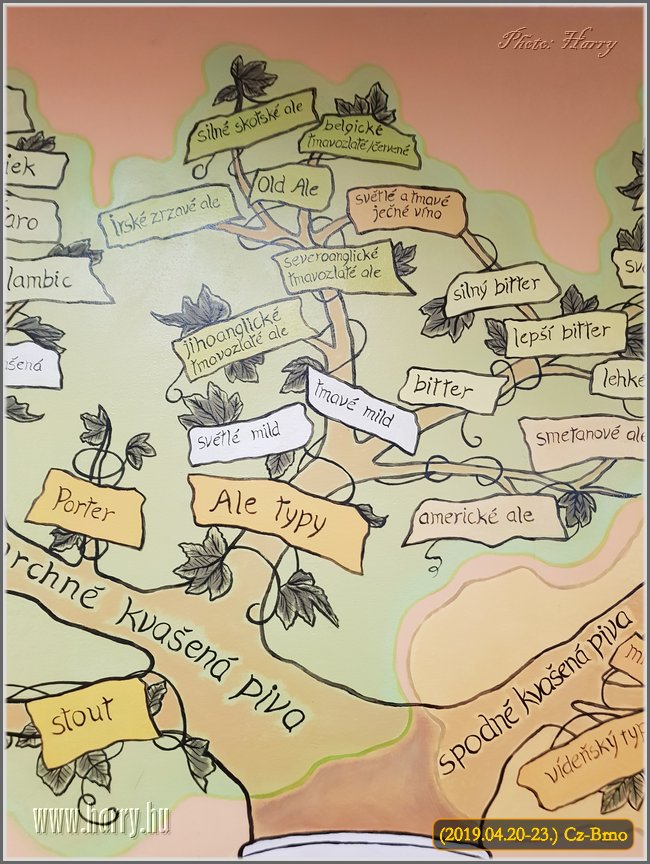 Photo: Harry
silné skotské ale
belgické
tmavozlaté/červené
Old Ale
irské zrzavé ale
světlé a tmavé
ječné víno
severoanglické
tmavozlaté ale
lambic
silný bitter
lepší bitter
jihoanglické
tmavozlaté ale
bitter
tmavé mild
světlé mild
smetanové ale
americké ale
Porter
Ale typy
kvašená piva
spodně kvašená piva
stout
vídeňský typ
www.harry.hu
(2019.04.20-23.) Cz-Brno